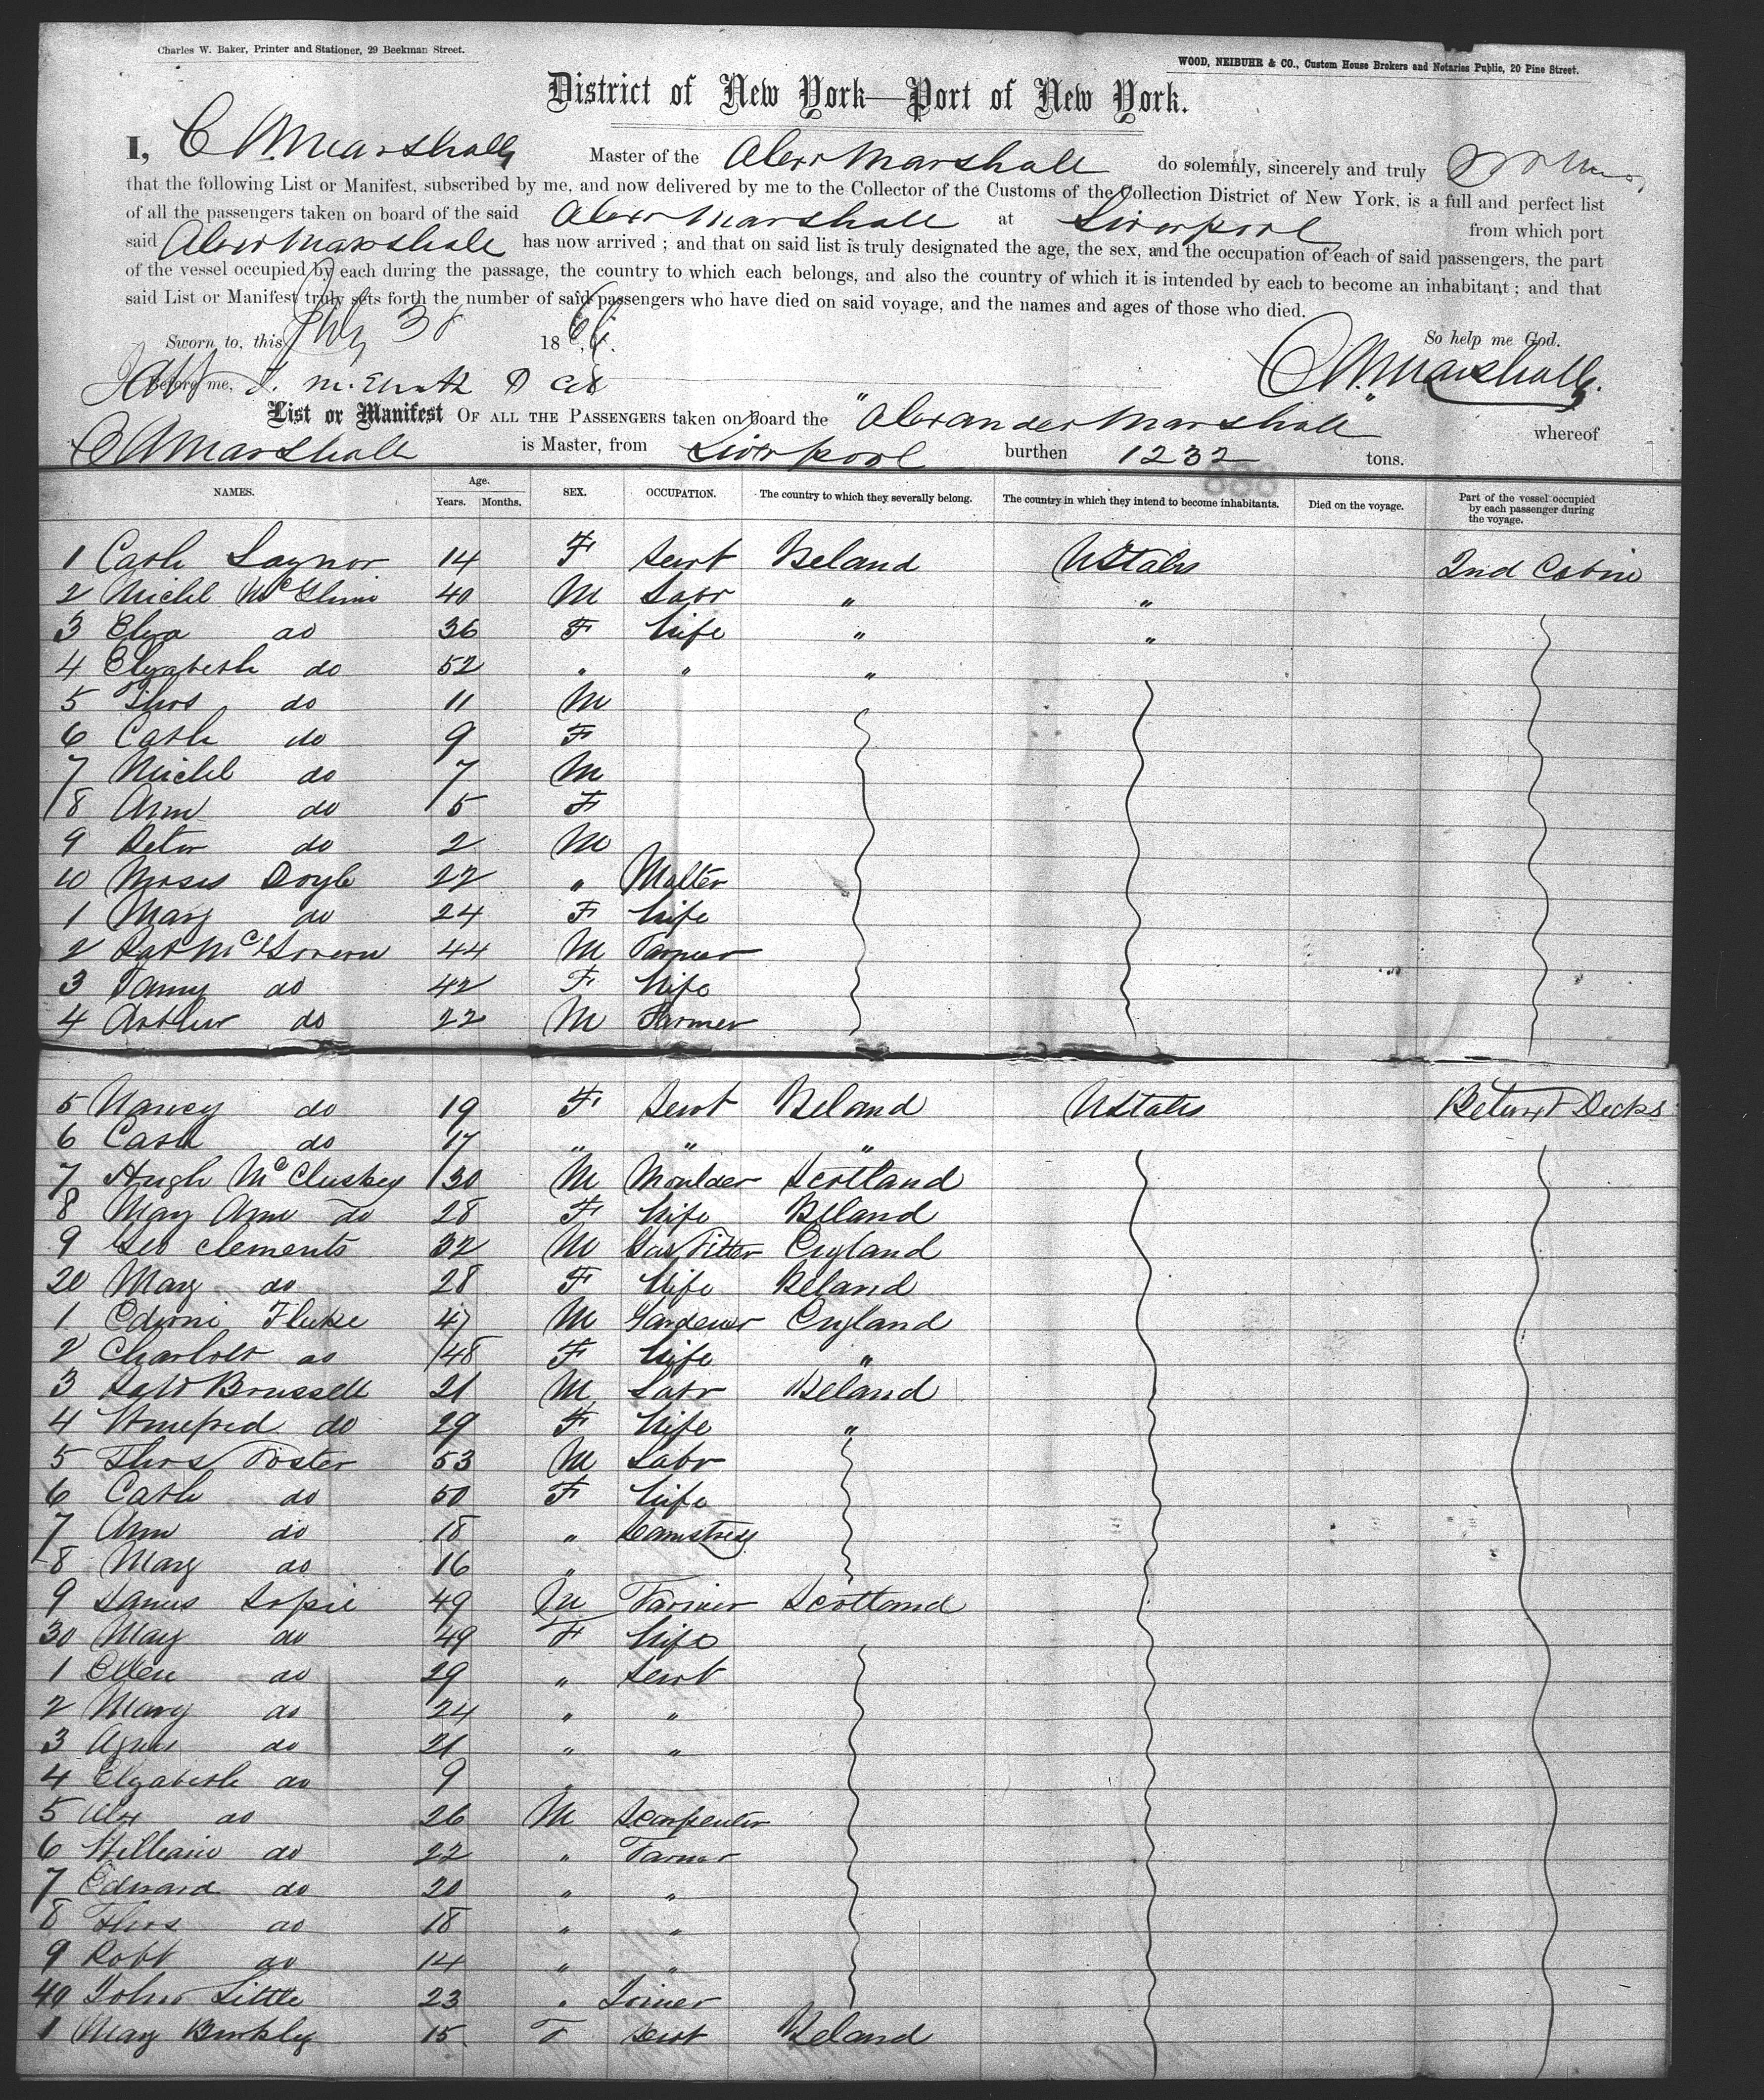 Charles W. Baker, Printer and Stationer, 29 Beekman Street.
WOOD, NEIBUHR & CO., Custom House Brokers and Notaries Public, 20 Pine Street.
District of New York—Port of New York.
I, C A Marshall Master of the Alexr Marshall do solemnly, sincerely and truly
that the following List or Manifest, subscribed by me, and now delivered by me to the Collector of the Customs of the Collection District of New York, is a full and perfect list
of all the passengers taken on board of the said Alexr Marshall at Liverpool from which port
said Alexr Marshall has now arrived; and that on said list is truly designated the age, the sex, and the occupation of each of said passengers, the part
of the vessel occupied by each during the passage, the country to which each belongs, and also the country of which it is intended by each to become an inhabitant; and that
said List or Manifest truly sets forth the number of said passengers who have died on said voyage, and the names and ages of those who died.
Sworn to, this 18 So help me God.
Before me, C A Marshall
List or Manifest OF ALL THE PASSENGERS taken on board the "Alexander Marshall" whereof
C A Marshall is Master, from Liverpool burthen 1232 tons.
NAMES. Age. Years. Months. SEX. OCCUPATION. The country to which they severally belong. The country in which they intend to become inhabitants. Died on the voyage. Part of the vessel occupied by each passenger during the voyage.
1 Cath 14 F Servt Ireland UStates 2nd Cabin
2 Michl 40 M Labr " "
3 Eliza do 36 F Wife " "
4 Elizabeth do 52 " " "
5 Thos do 11 M
6 Cath do 9 F
7 Michl do 7 M
8 Ann do 5 F
9 Peter do 2 M
10 Moses Doyle 22 " Malter
1 Mary do 24 F Wife
2 Pat McGovern 44 M Farmer
3 Fanny do 42 F Wife
4 Arthur do 22 M Farmer
5 Nancy do 19 F Servt Ireland UStates Betwxt Decks
6 Cath do 17 " " "
7 Hugh McCluskey 30 M Moulder Scotland
8 Mary Ann do 28 F Wife Ireland
9 Geo Clements 32 M Gas Fitter England
20 Mary do 28 F Wife Ireland
1 Edwin Fluke 47 M Gardener England
2 Charlott do 48 F Wife "
3 Patk Brussell 21 M Labr Ireland
4 Winefred do 29 F Wife "
5 Thos Foster 53 M Labr
6 Cath do 50 F Wife
7 Ann do 18 " Seamstress
8 Mary do 16 "
9 James 49 M Farmer Scotland
30 Mary do 49 F Wife
1 Ellen do 29 " Servt
2 Mary do 24 " "
3 Agnes do 21 " "
4 Elizabeth do 9 "
5 Alex do 26 M
6 William do 22 " Farmer
7 Edward do 20 " "
8 Thos do 18 " "
9 Robt do 14 " "
40 John Little 23 " Joiner
1 Mary 15 F Servt Ireland